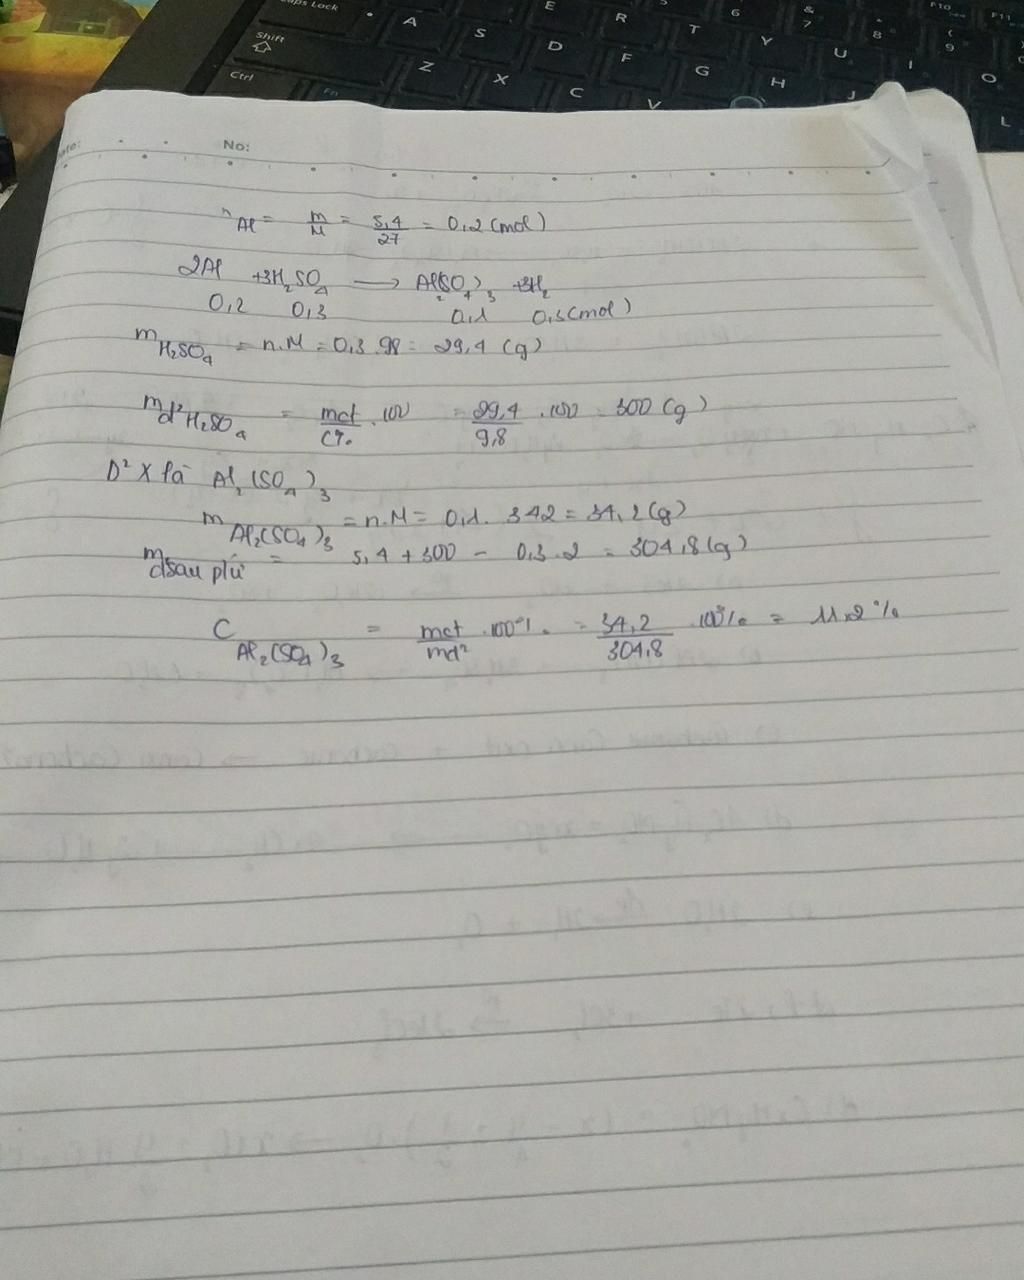 Caps Lock
E
R
T
6
&
7
*
8
(
9
F10
F11
A
S
D
F
G
Y
U
I
O
Shift
Z
X
C
V
H
J
L
Ctrl
Fn
No:
n Al = m/M = 5,4/27 = 0,2 (mol)
2Al + 3H₂SO₄ → Al₂(SO₄)₃ + 3H₂
0,2 0,3 0,1 0,3 (mol)
m H₂SO₄ = n.M = 0,3 . 98 = 29,4 (g)
m d² H₂SO₄ = mct/C% . 100 = 29,4/9,8 . 100 = 300 (g)
D² X là Al₂(SO₄)₃
m Al₂(SO₄)₃ = n.M = 0,1. 342 = 34,2 (g)
m dsau pứ = 5,4 + 300 - 0,3.2 = 304,8 (g)
C Al₂(SO₄)₃ = mct/md² .100% = 34,2/304,8 .100% = 11,2%